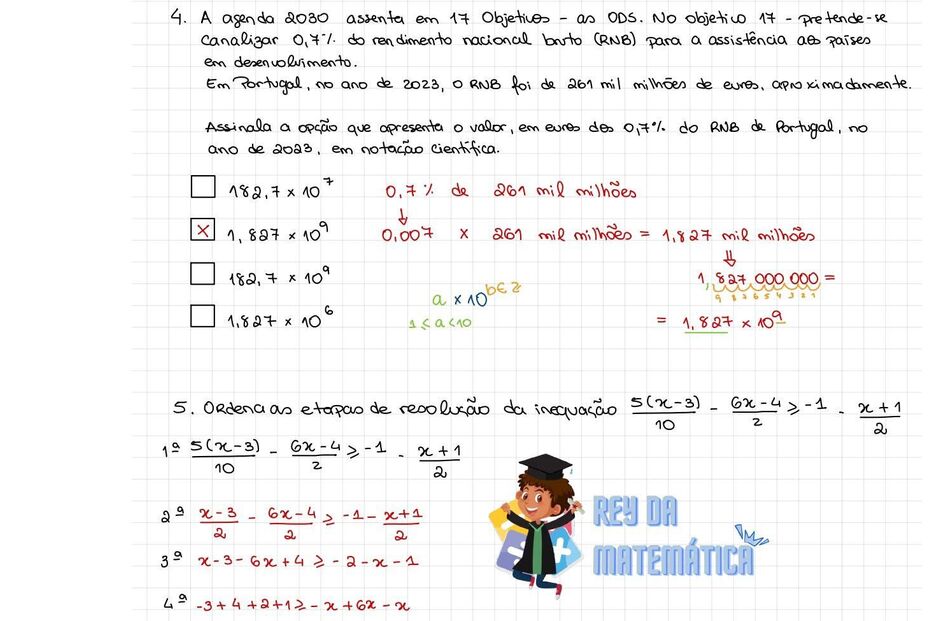 4. A agenda 2030 assenta em 17 Objetivos - as ODS. No objetivo 17 - pretende-se
canalizar 0,7% do rendimento nacional bruto (RNB) para a assistência aos países
em desenvolvimento.
Em Portugal, no ano de 2023, o RNB foi de 261 mil milhões de euros, aproximadamente.
Assinala a opção que apresenta o valor, em euros dos 0,7% do RNB de Portugal, no
ano de 2023, em notação científica.
182,7 × 10^7
0,7% de 261 mil milhões
↓
X 1,827 × 10^9
0,007 × 261 mil milhões = 1,827 mil milhões
⇓
182,7 × 10^9
1,827 000 000 =
9 8 7 6 5 4 3 2 1
a × 10^b∈Z
1 ≤ a < 10
1,827 × 10^6
= 1,827 × 10^9
5. Ordena as etapas de resolução da inequação 5(x-3)/10 - 6x-4/2 ≥ -1 - x+1/2
1ª 5(x-3)/10 - 6x-4/2 ≥ -1 - x+1/2
2ª x-3/2 - 6x-4/2 ≥ -1 - x+1/2
3ª x-3-6x+4 ≥ -2-x-1
4ª -3+4+2+1 ≥ -x+6x-x
REY DA
MATEMÁTICA